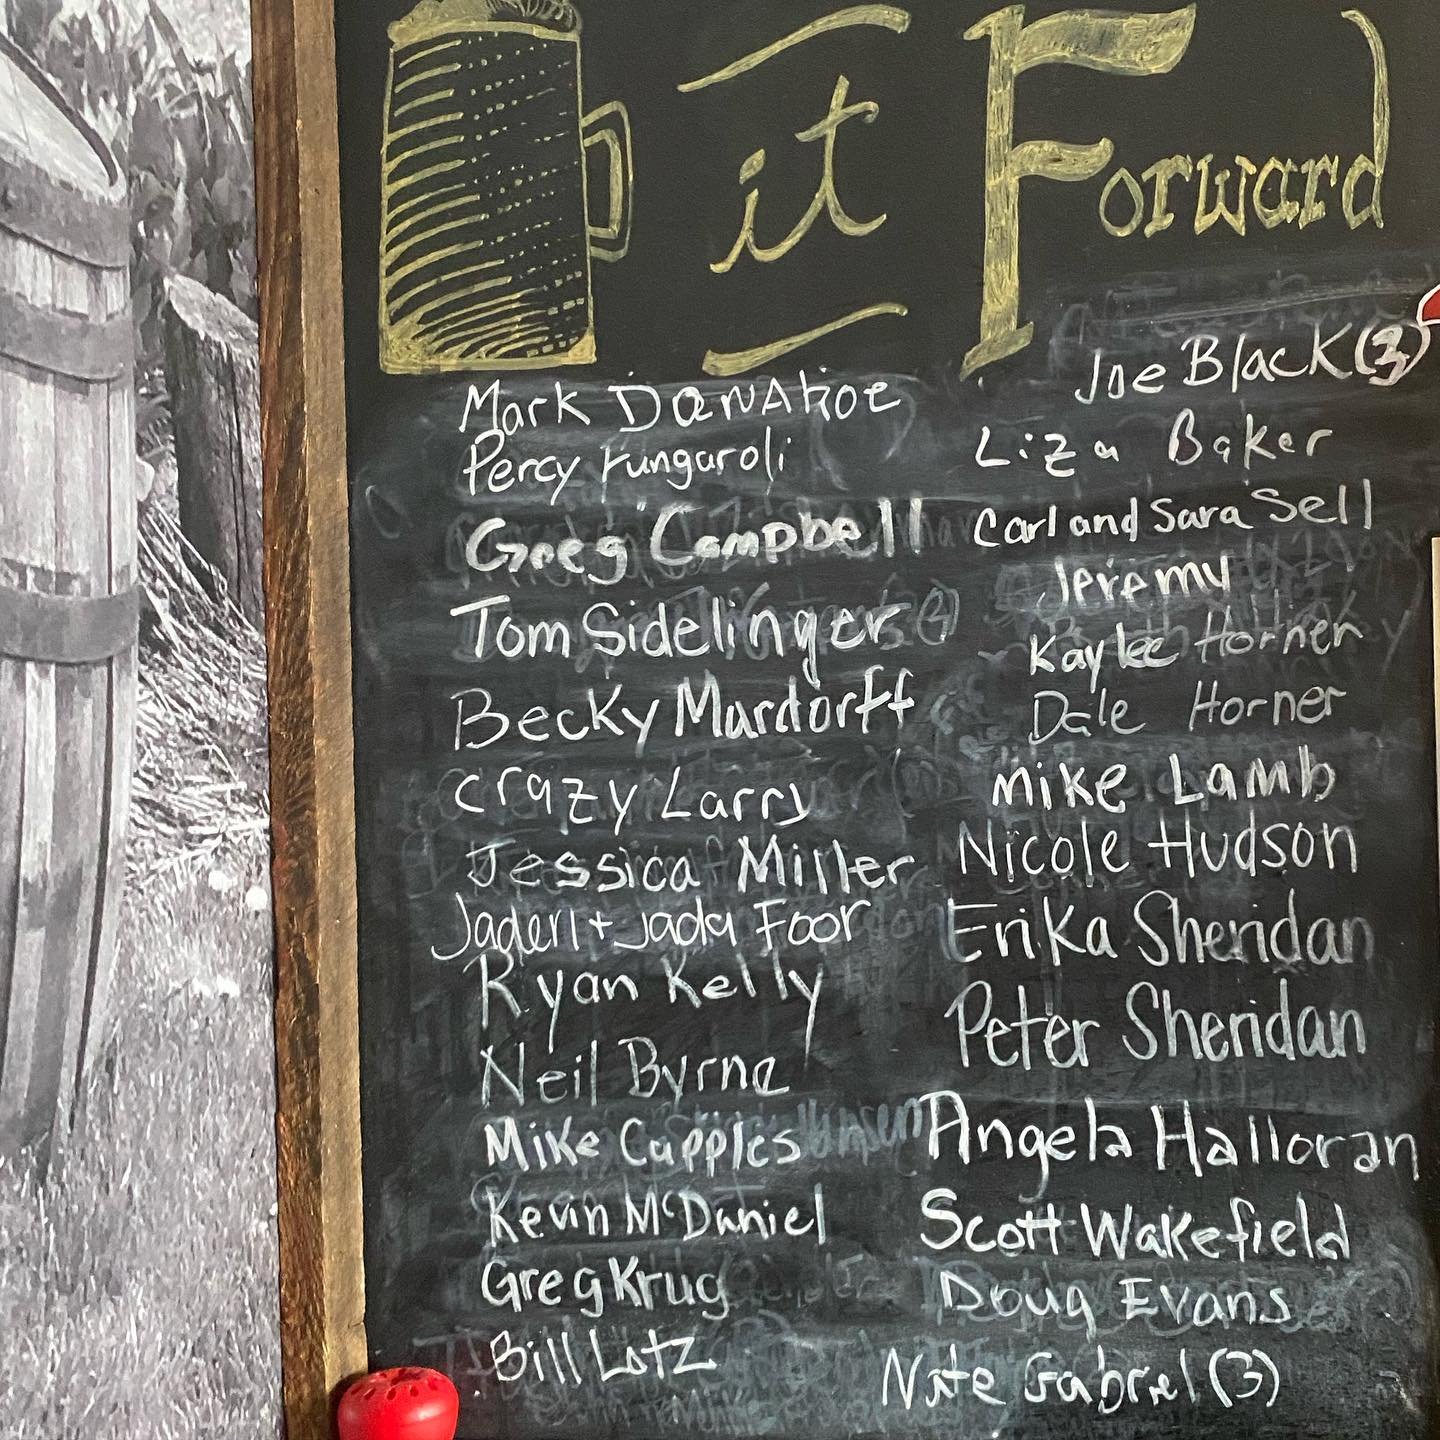 it Forward
Mark Donahoe
Percy Fungaroli
Greg Campbell
Tom Sidelinger
Becky Mardorff
Crazy Larry
Jessica Miller
Jaden + Jada Foor
Ryan Kelly
Neil Byrne
Mike Cupples
Kevin McDaniel
Greg Krug
Bill Lotz
Joe Black (3)
Liza Baker
Carl and Sara Sell
Jeremy
Kaylee Horner
Dale Horner
Mike Lamb
Nicole Hudson
Erika Sheridan
Peter Sheridan
Angela Halloran
Scott Wakefield
Doug Evans
Nate Gabriel (3)